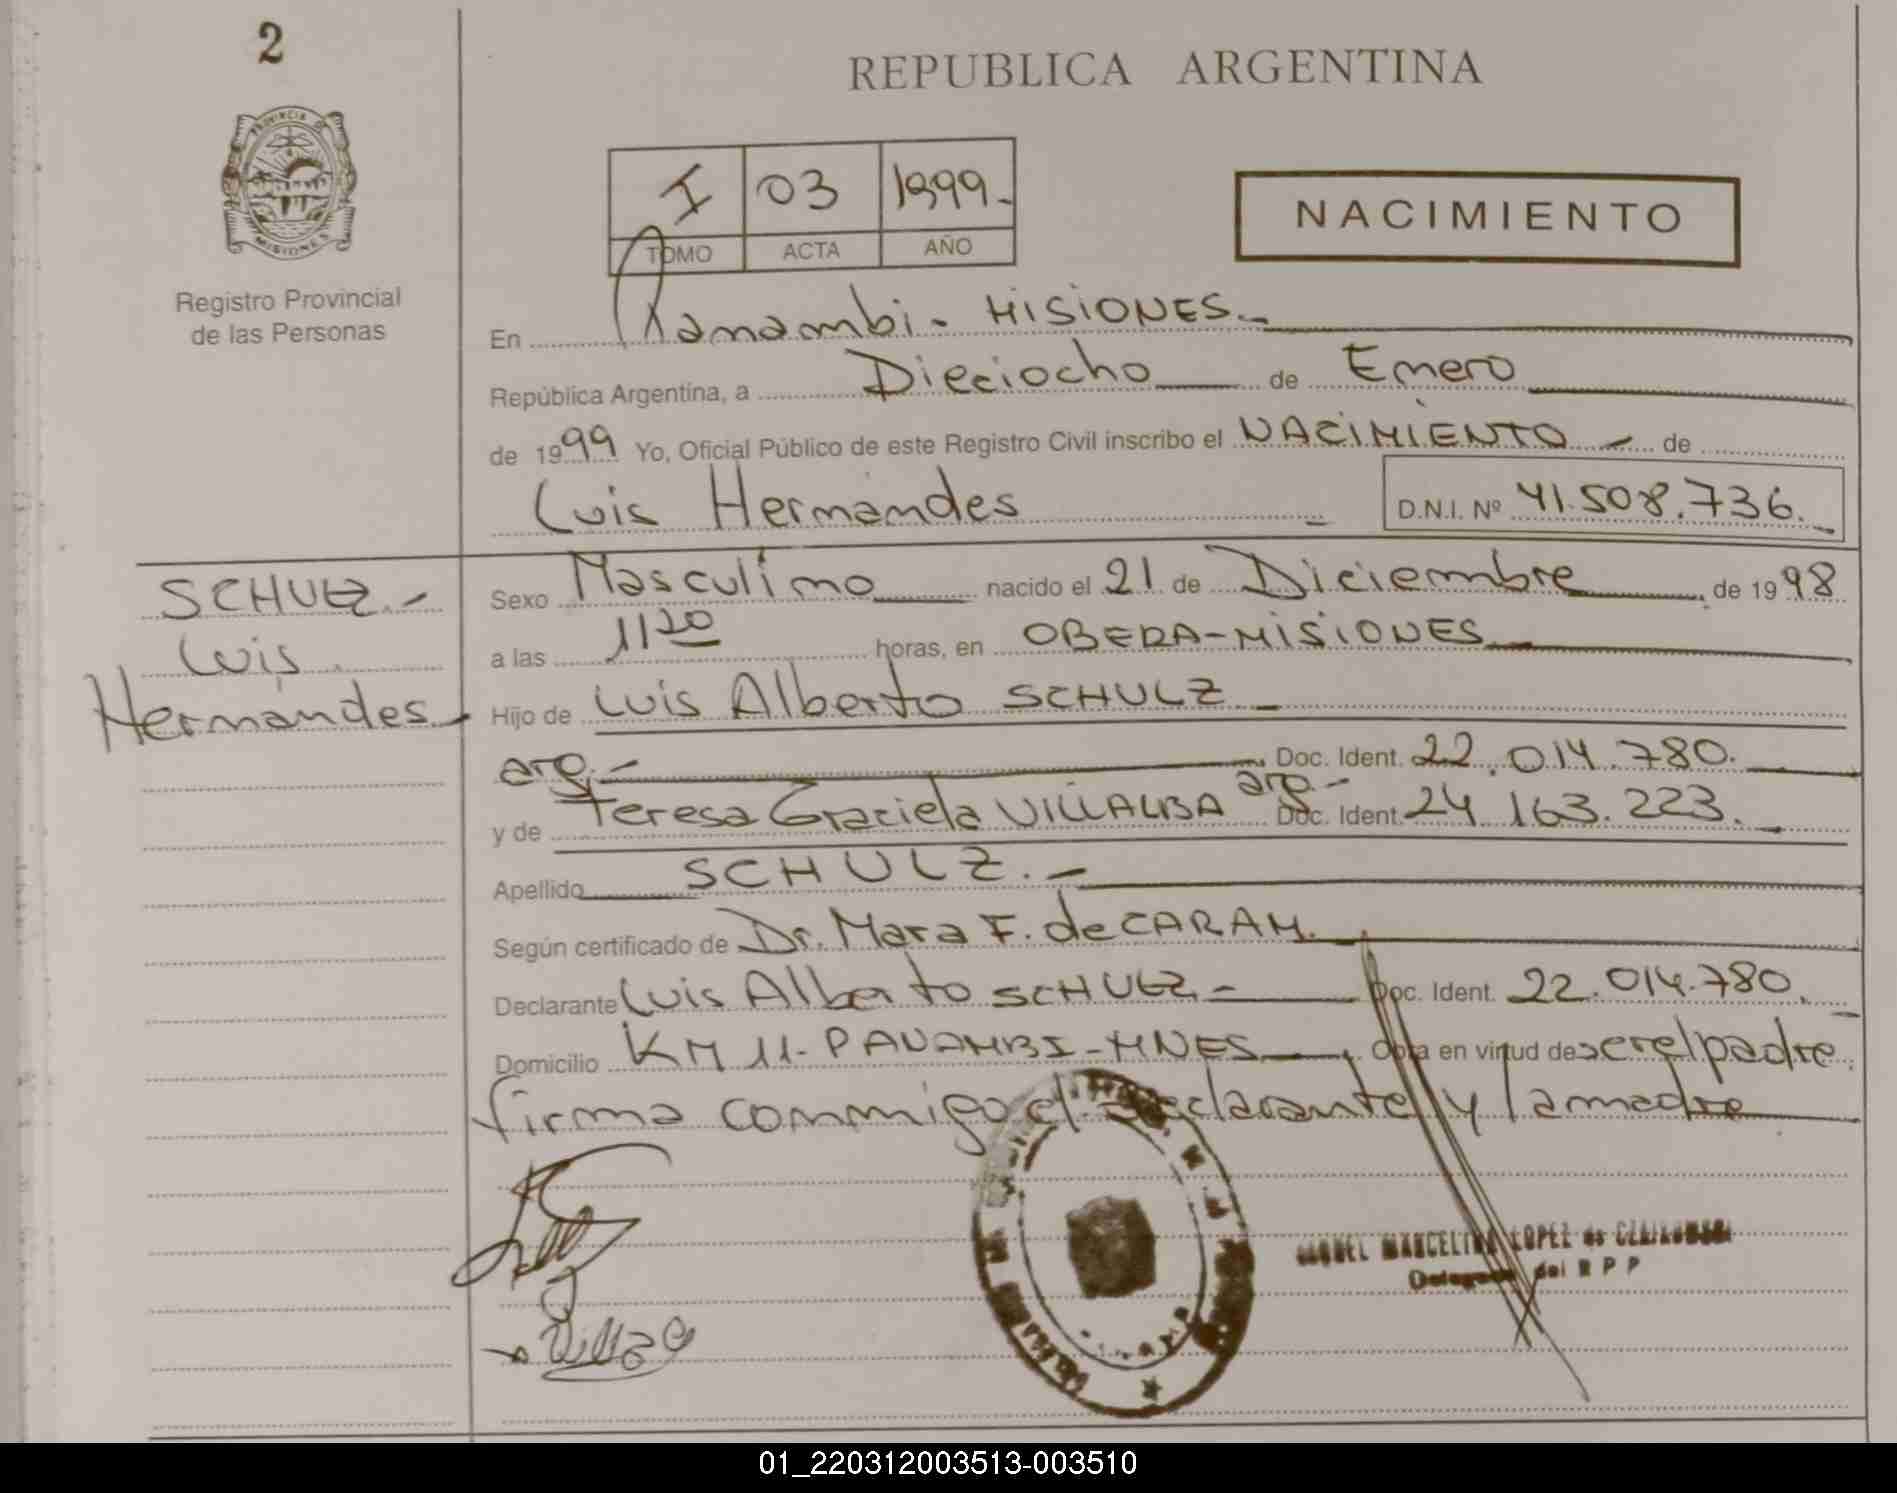 2
REPUBLICA ARGENTINA
PROVINCIA DE
MISIONES
Registro Provincial
de las Personas
I 03 1999.-
TOMO ACTA AÑO
NACIMIENTO
En Panambi - MISIONES.-
República Argentina, a Dieciocho de Enero
de 1999 Yo, Oficial Público de este Registro Civil inscribo el NACIMIENTO - de
Luis Hernandes - D.N.I. Nº 41.508.736.-
SCHULZ.-
Luis
Hernandes-
Sexo Masculino nacido el 21 de Diciembre de 1998
a las 11 20 horas, en OBERA-MISIONES
Hijo de Luis Alberto SCHULZ -
arg.- Doc. Ident. 22.014.780.-
y de Teresa Graciela VILLALBA arg.- Doc. Ident. 24 163.223.-
Apellido SCHULZ.-
Según certificado de Dr. Mara F. de CARAM.
Declarante Luis Alberto SCHULZ - Doc. Ident. 22.014.780.-
Domicilio KM 11- PANAMBI-MNES Obra en virtud de ser el padre
firma conmigo el declarante y la madre
LOPEZ de
Delegada del R P P
01_220312003513-003510